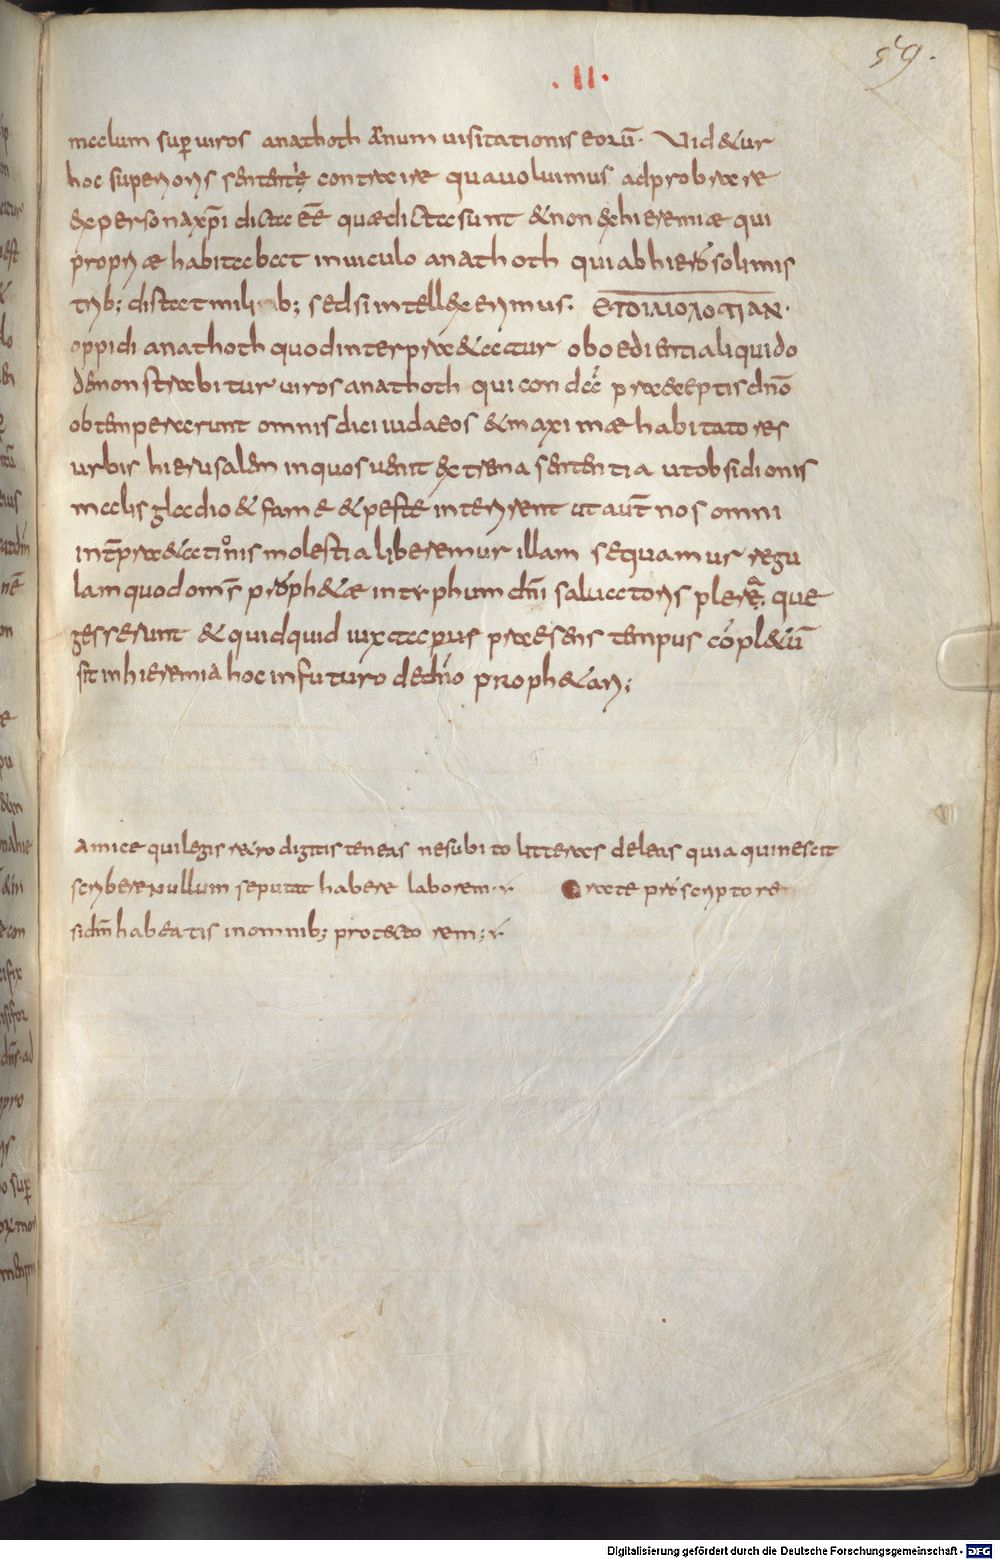 59.
· II ·
malum sup uiros anathoth ānnum uisitationis eorū· Uid&ur
hoc superioris sententię contraire qua uoluimus adprobare
ex persona xp̄i dicta eē quae dicta sunt & non ex hieremiae qui
propriae habitabat in uiculo anathoth qui ab hierosolimis
trib; distat milib; sed si intellexerimus· ετοιμολογιαν·
oppidi anathoth quod interpraetatur oboedientia liquido
demonstrabitur uiros anathoth qui condā praeceptis dn̄o
obtemperarunt omnis dici iudaeos & maximae habitatores
urbis hierusalem in quos uenit extrema sententia ut obsidionis
malis gladio & fame & peste interirent ut aut̄ nos omni
int̄pra&ationis molestia liberemur illam sequamur regu
lam quod om̄s proph&ae in typhum dn̄i saluatoris plerēa que
gesserunt & quidquid iuxta p̱us praesens tempus cōpl&ū
sit in hieremia hoc in futuro de dn̄o proph&ari;
Amice qui legis r&ro digitis teneas ne subito litteras deleas quia qui nescit
scribere nullum se putat habere laborem·
Orate pro scriptore
si dm̄ habeatis in omnib; prot&torem;
Digitalisierung gefördert durch die Deutsche Forschungsgemeinschaft - DFG